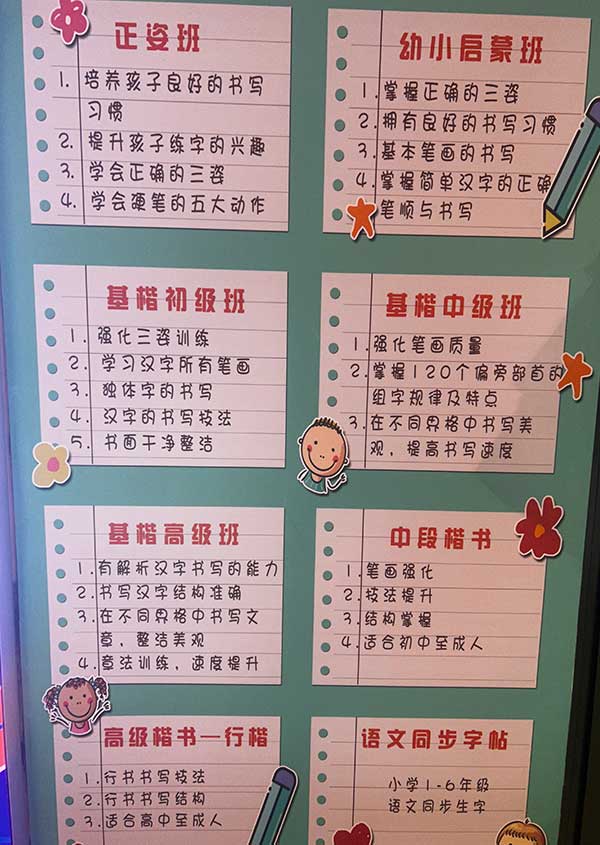 正姿班
1. 培养孩子良好的书写
习惯
2. 提升孩子练字的兴趣
3. 学会正确的三姿
4. 学会硬笔的五大动作
幼小启蒙班
1.掌握正确的三姿
2.拥有良好的书写习惯
3.基本笔画的书写
4.掌握简单汉字的正确
笔顺与书写
基楷初级班
1. 强化三姿训练
2. 学习汉字所有笔画
3. 独体字的书写
4. 汉字的书写技法
5. 书面干净整洁
基楷中级班
1.强化笔画质量
2.掌握120个偏旁部首的
组字规律及特点
3.在不同界格中书写美
观，提高书写速度
基楷高级班
1.有解析汉字书写的能力
2.书写汉字结构准确
3.在不同界格中书写文
章，整洁美观
4.章法训练，速度提升
中段楷书
1.笔画强化
2.技法提升
3.结构掌握
4.适合初中至成人
高级楷书—行楷
1.行书书写技法
2.行书书写结构
3.适合高中至成人
语文同步字帖
小学1-6年级
语文同步生字